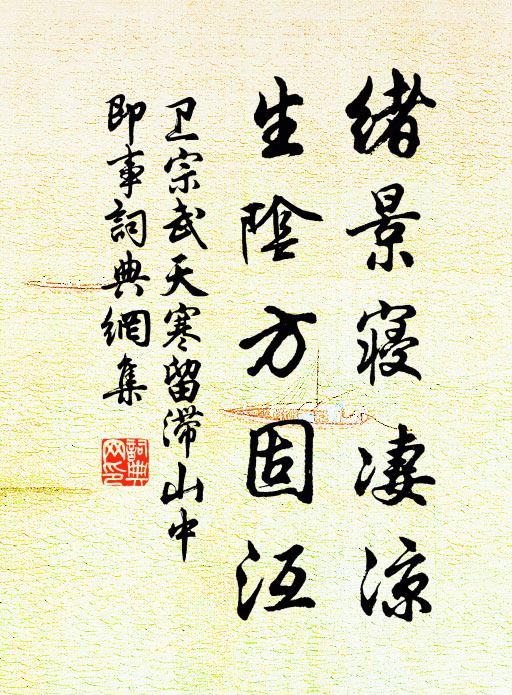 緒景寝凄凉
生陰方固沍
卫宗武天寒留滞山中
即事詞典網集
詞典网印